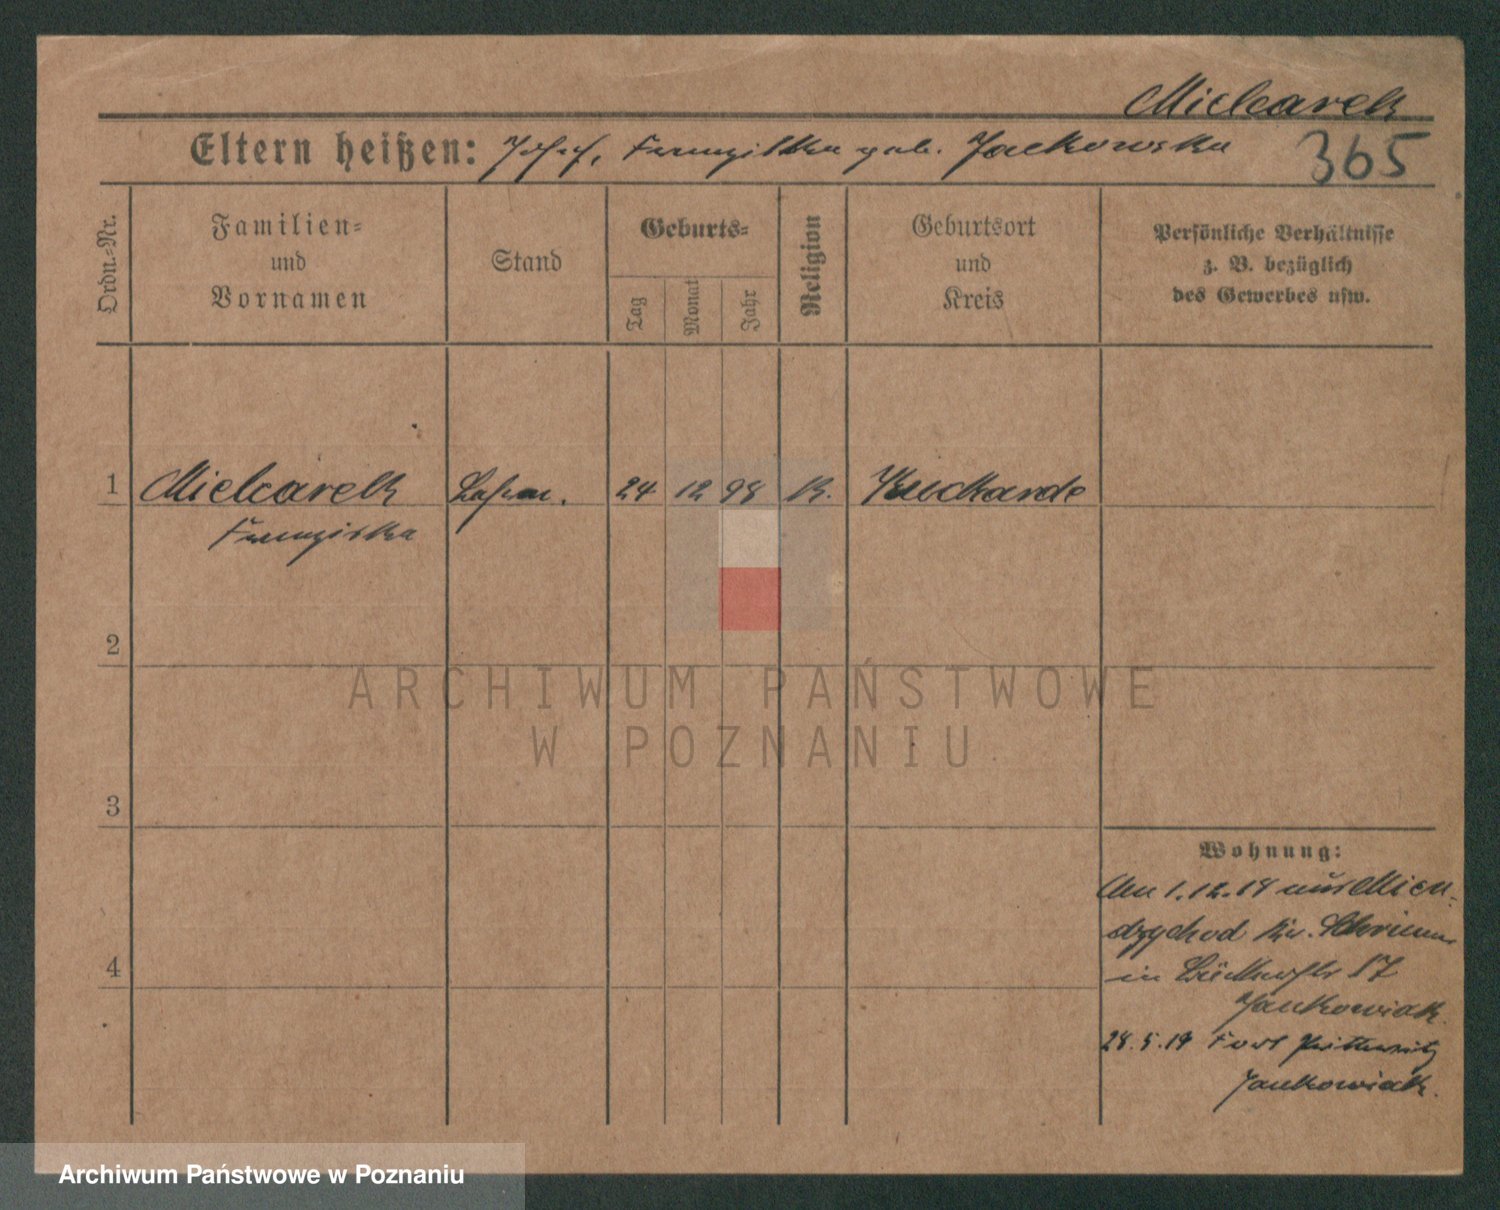 Mielcarek
Eltern heißen: Josef, Franziska geb. Jackowska
365
Ordn.-Nr.
Familien-
und
Vornamen
Stand
Geburts-
Tag
Monat
Jahr
Religion
Geburtsort
und
Kreis
Persönliche Verhältnisse
z. B. bezüglich
des Gewerbes usw.
1 Mielcarek 24 12 98 K. Huckarde
Franziska
2
3
4
Wohnung:
Am 1.12.18 aus Mien-
dzychod Kr. Schrimm
in 17
Jankowiak
28.5.19 Fort Prittwitz
Jankowiak.
ARCHIWUM PAŃSTWOWE
W POZNANIU
Archiwum Państwowe w Poznaniu